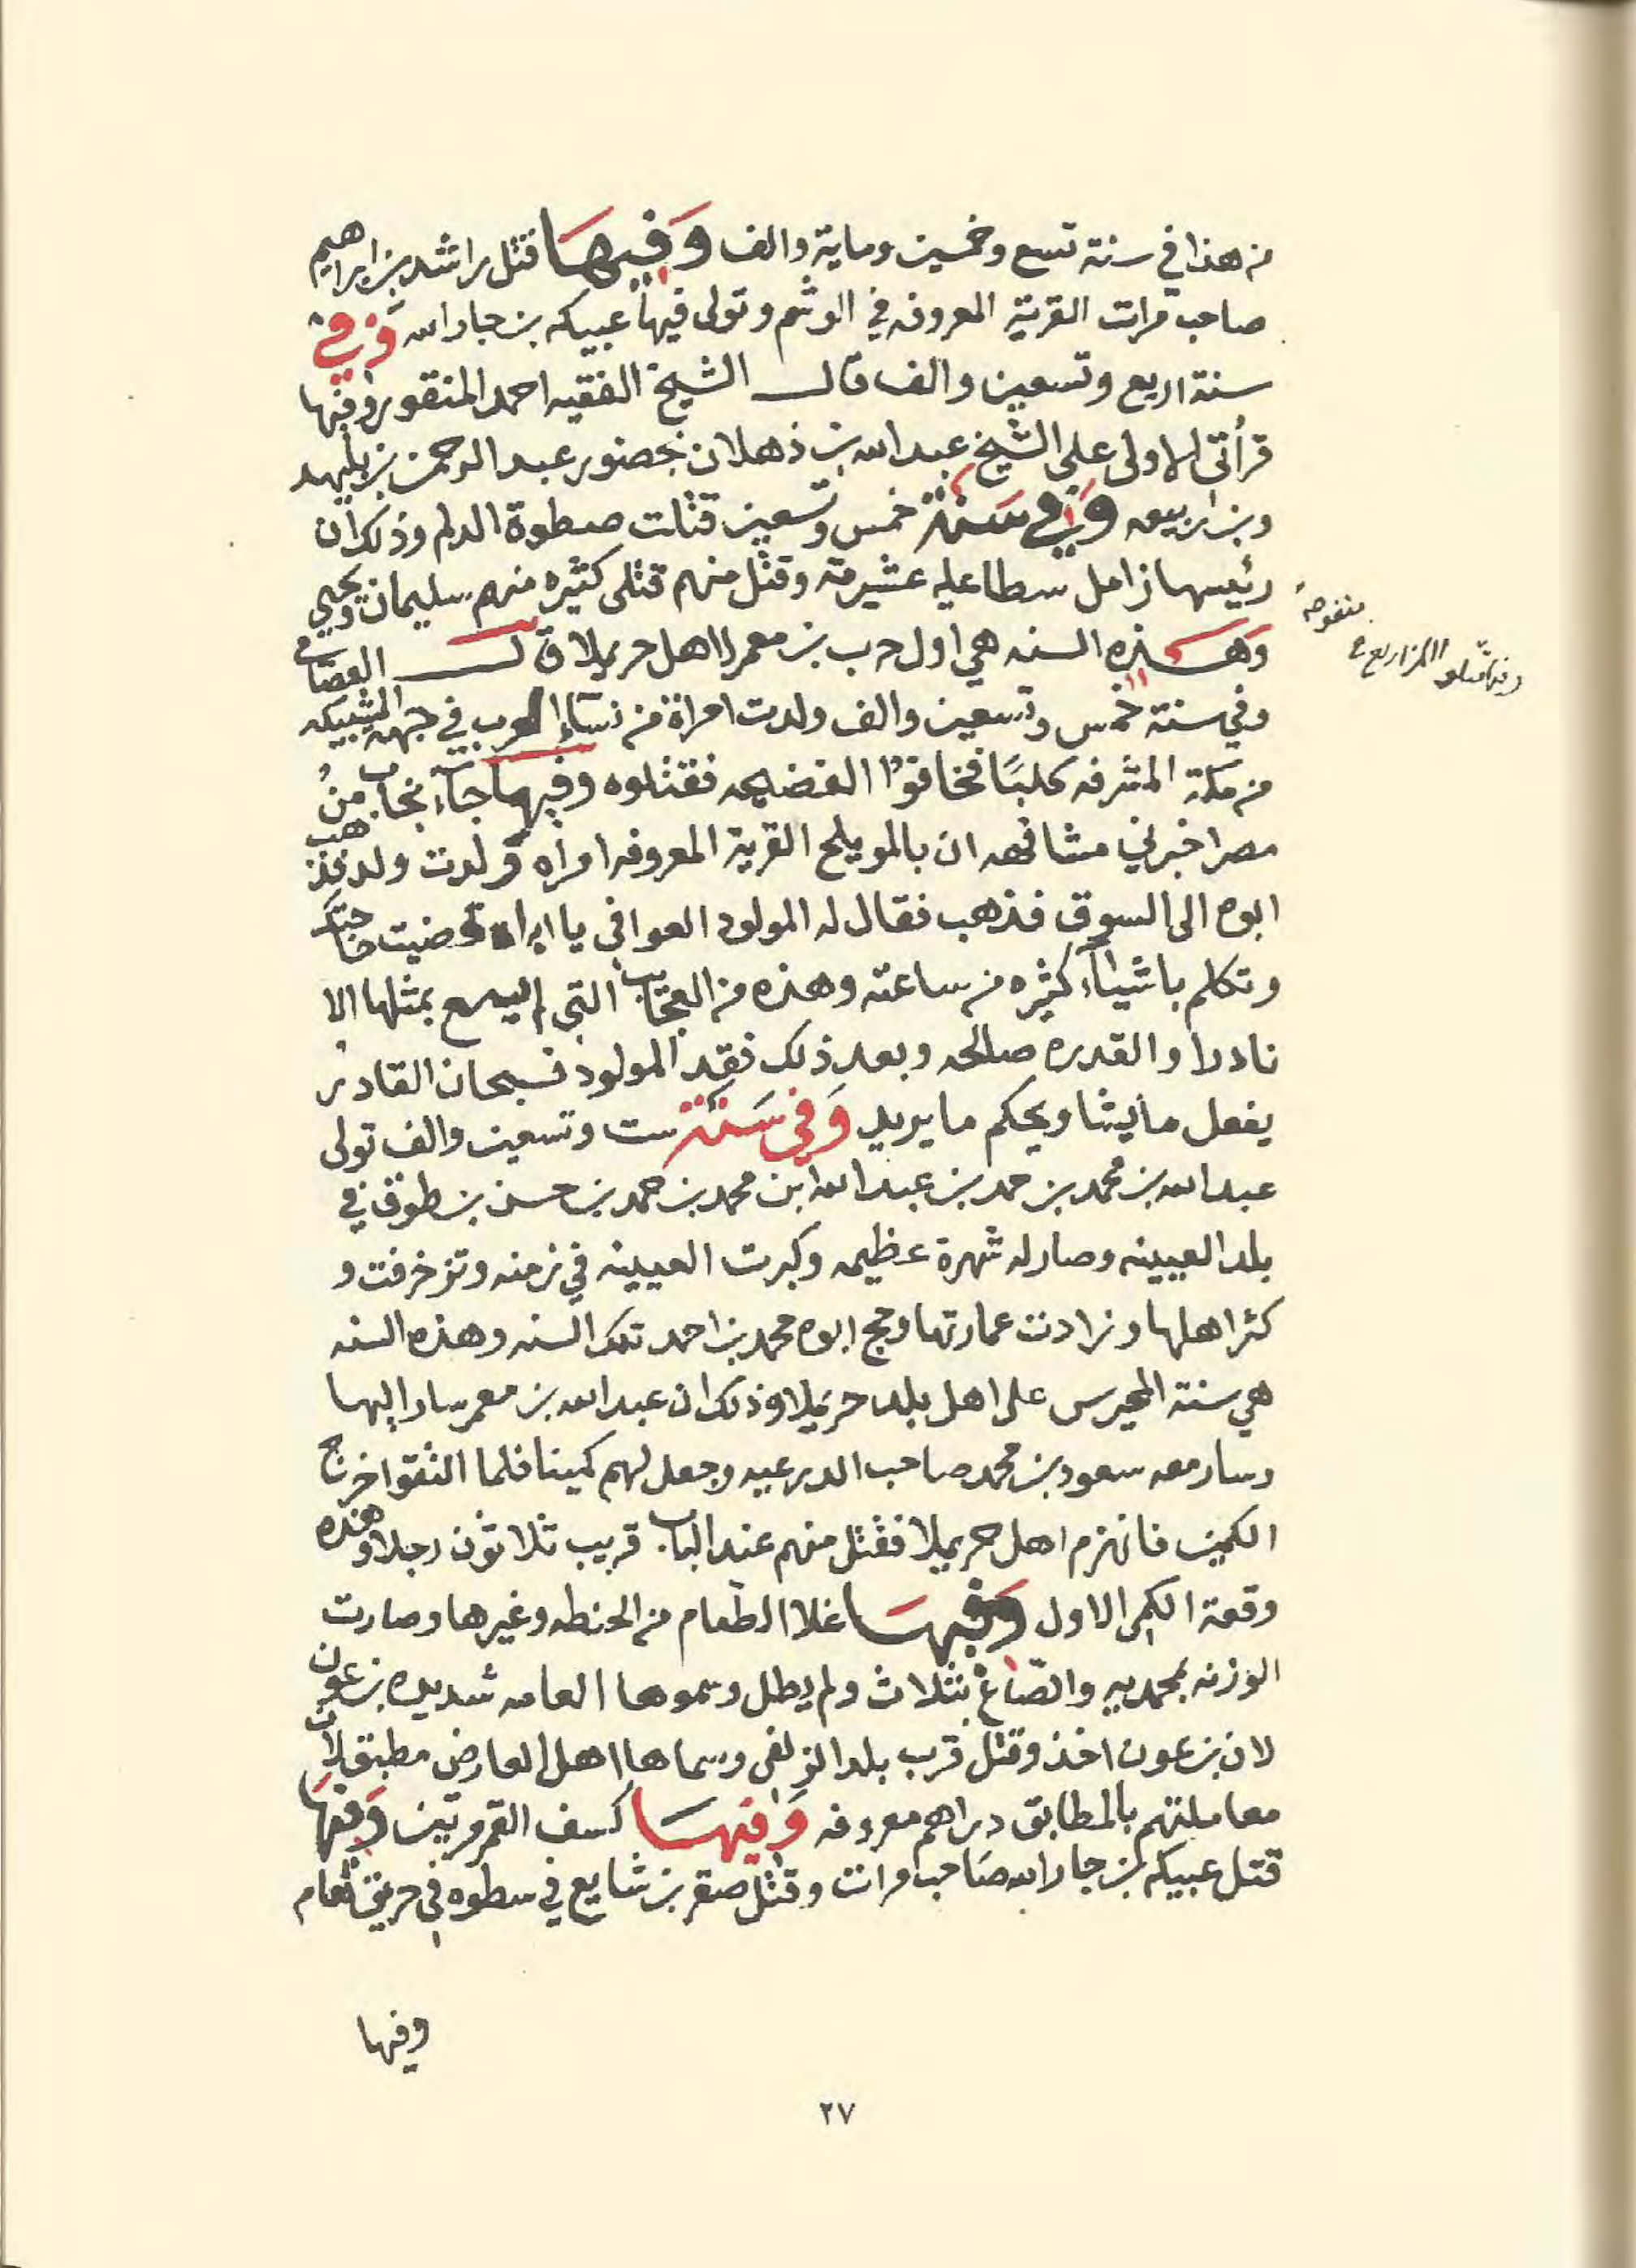 من هذا في سنة تسع وخمسين وماية والف وَفيهَا قتل راشد بن ابراهيم
صاحب مرات القرية المعروفه في الوشم وتولى فيها عبيكه بن جارالله وَفي
سنة اربع وتسعين والف قال الشيخ الفقيه احمد المنقور وفيها
قرأتي الاولى على الشيخ عبدالله بن ذهلان بحضور عبد الرحمن بن بليهد
وبن ربيعه وَفي سَنة خمس وتسعين قتلت صطوة الدلم وذلك ان
رئيسها زامل سطا عليه عشيرته وقتل منهم قتلى كثيره منهم سليمان ويحيى
وَهَذه السنه هي اول حرب بن معمر لاهل حريملا قال العصامي
وفي سنة خمس وتسعين والف ولدت امراة من نساء العرب في جهة المشبيكه
من مكة المشرفه كلبًا فخافوا الفضيحه فقتلوه وفيها جاء نجاب منْ
مصر اخبرني مشافهه ان بالمويلح القرية المعروفه امراه ولدت ولد فذهب
ابوه الى السوق فذهب فقال له المولود العوافي يا ابراه قضيت حاجتك
وتكلم باشياء كثيره من ساعته وهذه من العجايب التي لم يسمع بمثلها الا
نادرا والقدره صالحه وبعد ذلك فقد المولود فسبحان القادر
يفعل ما يشا ويحكم ما يريد وَفي سَنة ست وتسعين والف تولى
عبدالله بن محمد بن حمد بن عبدالله ابن محمد بن حمد بن حسن بن طوق في
بلد العيينه وصار له شهرة عظيمه وكبرت العيينه في زمنه وتزخرفت و
كثر اهلها وزادت عمارتها وحج ابوه محمد بن احمد تلك السنه وهذه السنه
هي سنة المحيرس على اهل بلد حريملا وذلك ان عبدالله بن معمر سار اليها
وسار معه سعود بن محمد صاحب الدرعيه وجعل لهم كمينا فلما التقوا خرج
الكمين فانهزم اهل حريملا فقتل منهم عند الباب قريب ثلاثون رجلا وهذه
وقعة الكمين الاول وَفيهَا غلا الطعام من الحنطه وغيرها وصارت
الوزنه بمحمديه والصاع بثلاث ولم يطل وسموها العامه شديدة بن عون
لان بن عون اخذ وقتل قرب بلد الزلفي وسماها اهل العارض مطبق لان
معاملتهم بالمطابق دراهم معروفه وَفيهَا كسف القمر مرتين وَفيهَا
قتل عبيكه بن جارالله صاحب مرات وقتل صقر بن شايع في سطوه في حريق نعام
وفيها
٢٧